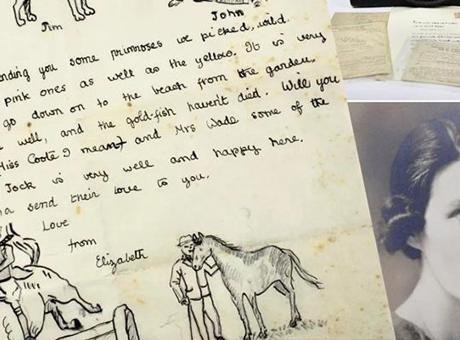 Jim
John
nding you some primroses we picked wild
pink ones as well as the yellow. It is very
go down on to the beach from the garden.
well, and the gold-fish havent died. Will you
Miss Coote I meant and Mrs Wade some of the
Jock is very well and happy here.
send their love to you.
Love
from
Elizabeth